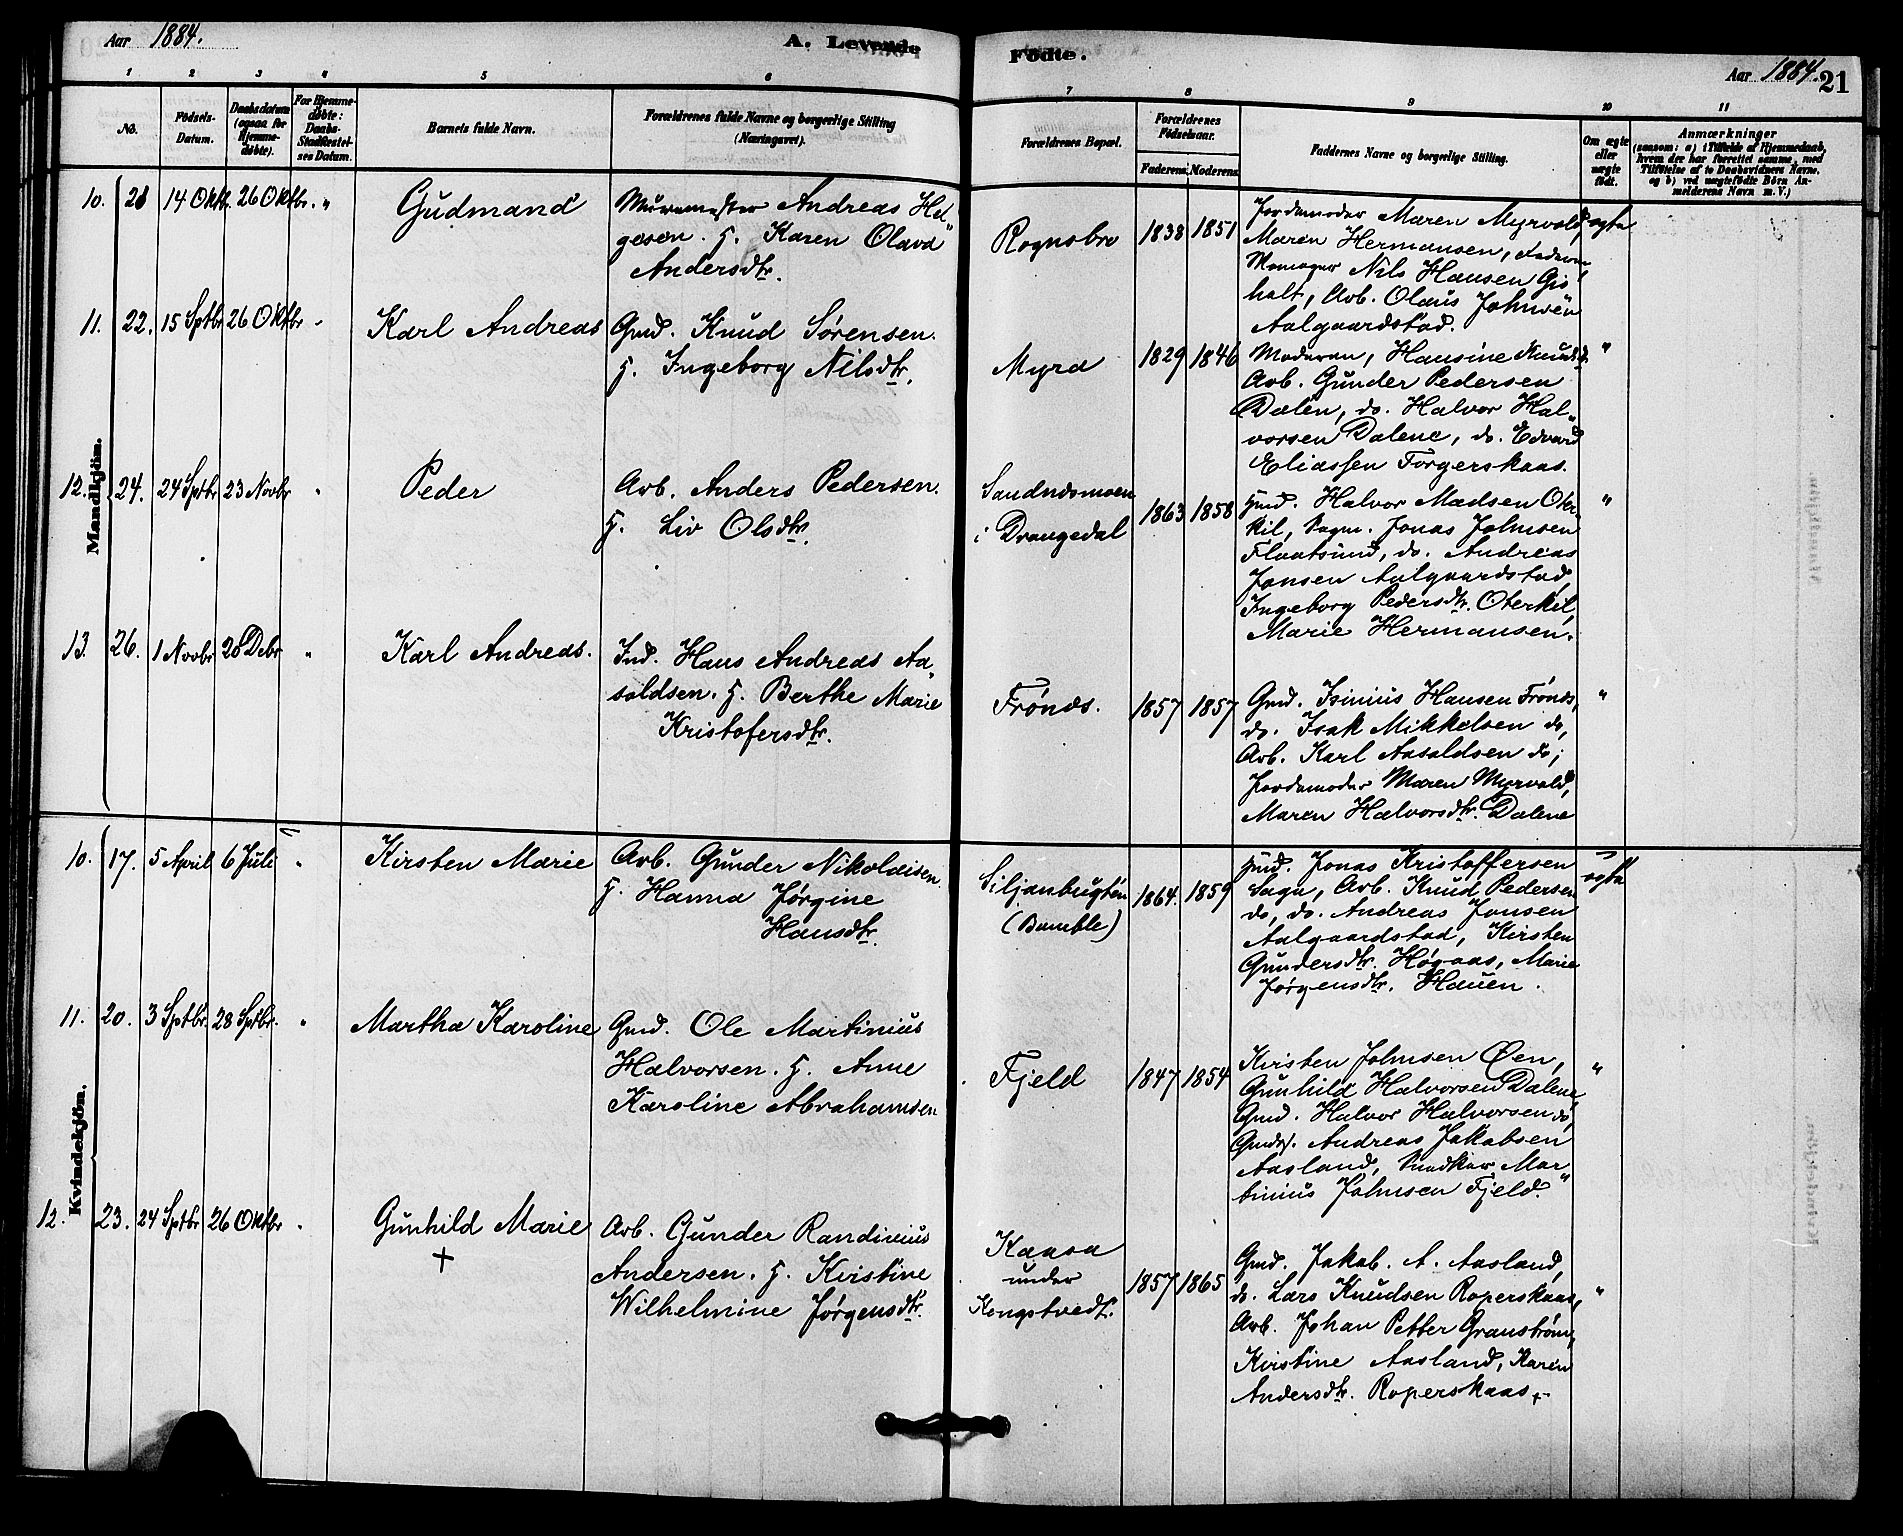 Aar 1884.
A. Levende
Fødte.
Aar 1884.
21
1 2 3 4 5 6
7 8 9 10 11
No.
Fødsels-
Datum.
Daabsdatum
(ogsaa for
Hjemme-
døbte).
For Hjemme-
døbte:
Daabs-
Stadfæstel-
ses Datum.
Barnets fulde Navn.
Forældrenes fulde Navne og borgerlige Stilling
(Næringsvei).
Forældrenes Bopæl.
Forældrenes
Fødselsaar.
Faderens. Moderens.
Faddernes Navne og borgerlige Stilling.
Om ægte
eller
uægte
født.
Anmærkninger
(saasom: a) i Tilfælde af Hjemmedaab,
hvem der har forrettet samme, med
Tilføielse af to Daabsvidners Navne,
og b) ved uægtefødte Børn An-
melderens Navn m. V.)
Mandkjön.
10. 21 14 Oktb. 26 Oktbr. "
Gudmand
Muremester Andreas Hel-
gesen. H. Karen Olava
Andersdtr.
Rognsbro
1838 1851
Jordemoder Maren Myrvold,
Maren Hermansen, Faderen,
Nils Hansen Gis-
holt, Arb. Olaus Johnsen
Aalgaardstad.
ægte
11. 22. 15 Sptbr 26 Oktbr "
Karl Andreas
Gmd. Knud Sørensen.
H. Ingeborg Nilsdtr.
Myra
1829 1846
Moderen, Hansine Knudsd.
Arb. Gunder Pedersen
Dalen, do. Halvor Hal-
vorsen Dalene, do. Edvard
Eliassen Torgerskaas.
"
12. 24. 24 Sptbr 23 Novbr "
Peder
Arb. Anders Pedersen.
H. Liv Olsdtr.
Sandnesmoen
i Drangedal
1863 1858
Hmd. Halvor Madsen Oter-
kil, Sagm. Jonas Johnsen
Flaatsund, do. Andreas
Jansen Aalgaardstad,
Ingeborg Pedersdtr. Oterkil,
Marie Hermansen.
"
13. 26. 1 Novbr 28 Debr "
Karl Andreas.
Ind. Hans Andreas Aa-
soldsen. H. Berthe Marie
Kristofersdtr.
Frønes.
1857 1857
Gmd. Isinius Hansen Frønes,
do. Isak Mikkelsen do,
Arb. Karl Aasoldsen do;
Jordemoder Maren Myrvold,
Maren Halvorsdtr. Dalene
"
Kvindekjön.
10. 17. 5 April 6 Juli "
Kirsten Marie
Arb. Gunder Nikolaisen.
H. Hanna Jørgine
Hansdtr.
Siljanbugten
(Bamble)
1864. 1859
Hmd. Jonas Kristoffersen
Saga, Arb. Knud Pedersen
do, do. Andreas Jansen
Aalgaardstad, Kirsten
Gundersdtr. Høgaas, Marie
Jørgensdtr. Hauen.
ægte
11. 20. 3 Sptbr. 28 Sptbr. "
Martha Karoline
Gmd. Ole Martinius
Halvorsen. H. Anne
Karoline Abrahamsen
Fjeld
1847 1854
Kirsten Johnsen Øen,
Gunhild Halvorsen Dalene,
Gmd. Halvor Halvorsen do,
Gmds. Andreas Jakobsen
Aasland, Snedker Mar-
tinius Johnsen Fjeld.
"
12. 23. 24 Sptbr 26 Oktbr "
Gunhild Marie
+
Arb. Gunder Randinius
Andersen. H. Kirstine
Wilhelmine Jørgensdtr.
Kaasa
under
Kongstvedt.
1857 1865
Gmd. Jakob. A. Aasland,
do. Lars Knudsen Roperskaas,
Arb. Johan Petter Granstrøm,
Kirstine Aasland, Karen
Andersdtr. Roperskaas.
"